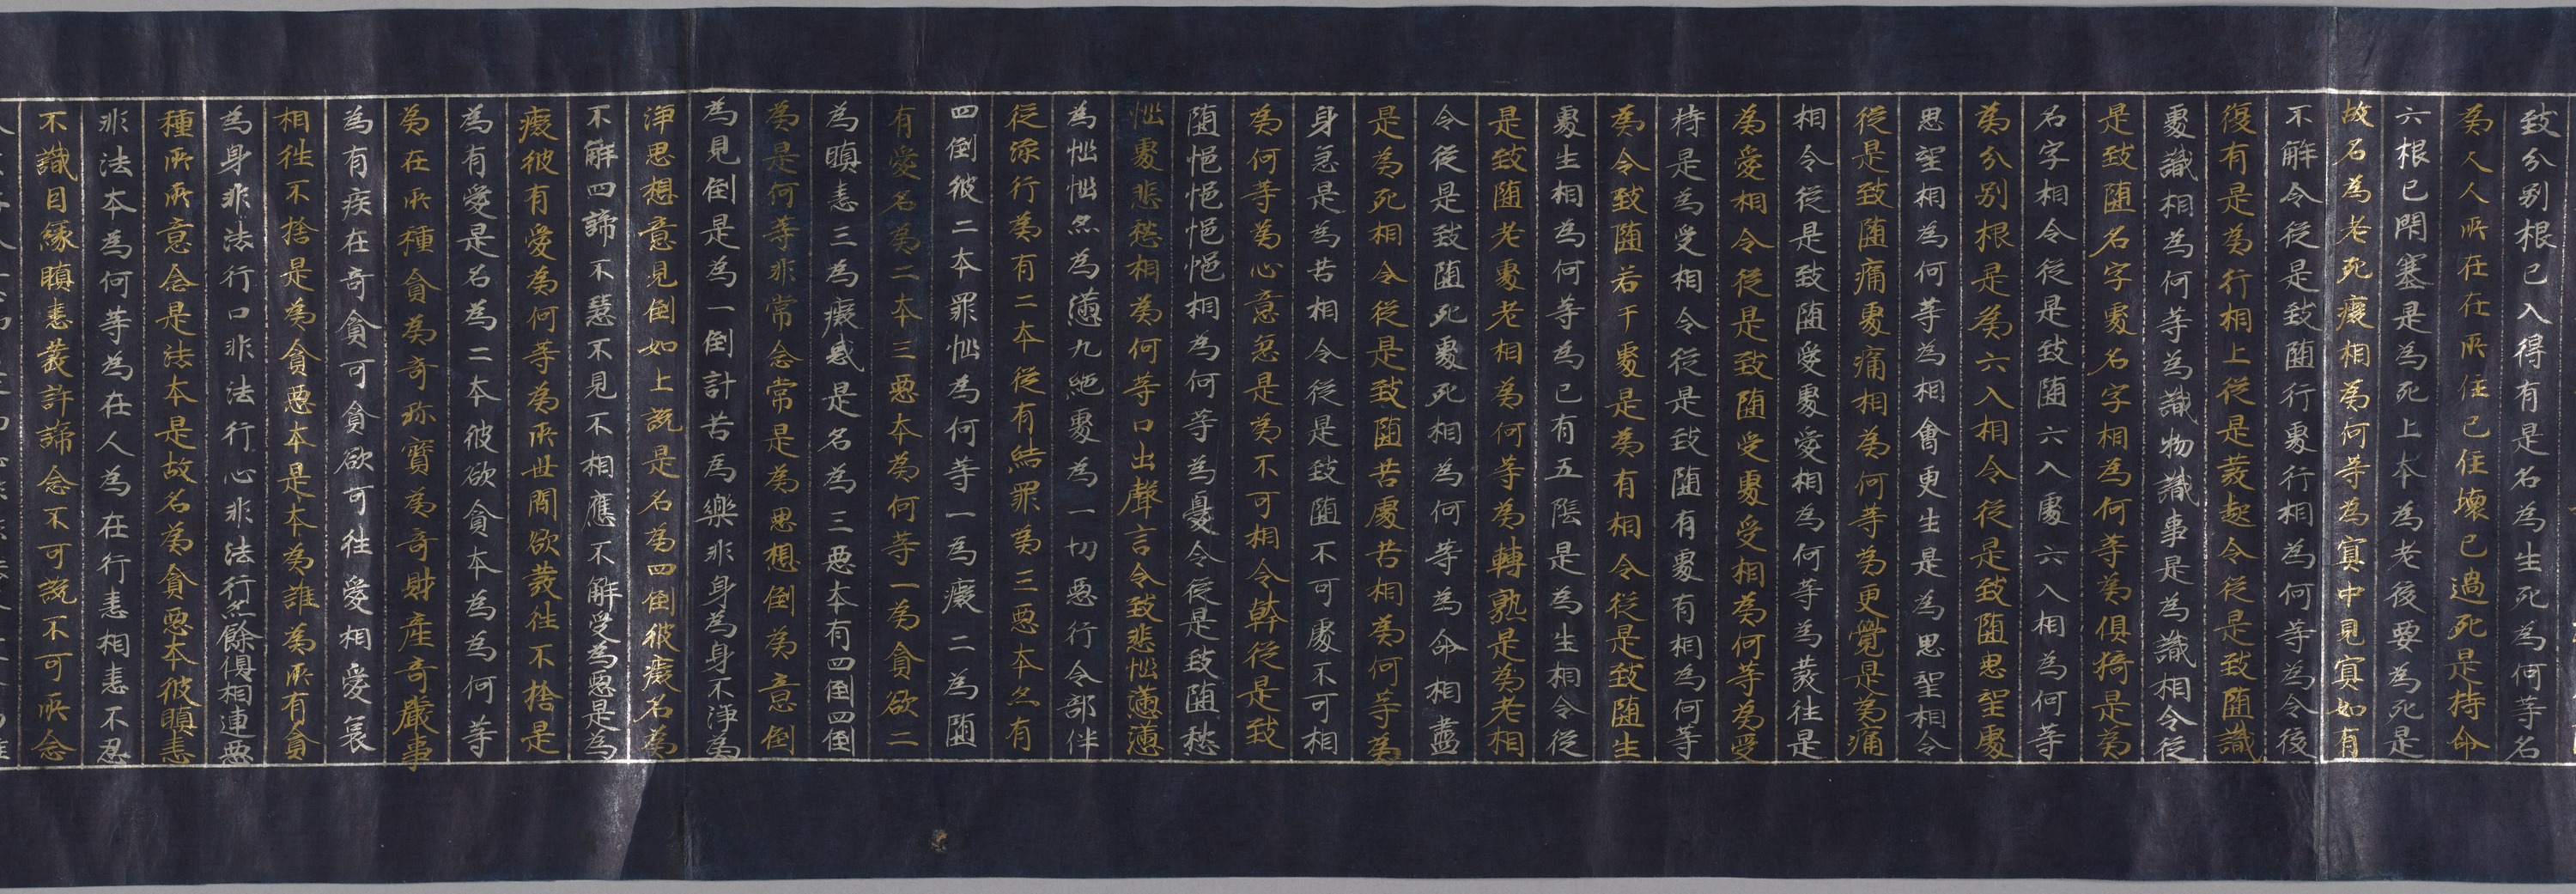 致分别根已入得有是名為生死為何等名
為人人所在在所住已住壞已過死是持命
六根已閉塞是為死上本為老後要為死是
故名為老死癡相為何等為冥中見冥如有
不解令從是致随行處行相為何等為令後
復有是為行相上從是菱起令從是致随識
處識相為何等為識物識事是為識相令從
是致随名字處名字相為何等為俱猗是為
名字相令從是致随六入處六入相為何等
為分别根是為六入相令從是致随思望處
思望相為何等為相會更生是為思望相令
從是致随痛處痛相為何等為更覺是為痛
相令從是致随愛處愛相為何等為菱往是
為愛相令從是致随受處受相為何等為受
持是為受相令從是致随有處有相為何等
為令致随若干處是為有相令從是致随生
處生相為何等為已有五陰是為生相令從
是致随老處老相為何等為轉熟是為老相
令從是致随死處死相為何等為命相盡
是為死相令從是致随苦處苦相為何等為
身急是為苦相令從是致随不可處不可相
為何等為心意急是為不可相令幹從是致
随悒悒悒悒相為何等為憂令從是致随愁
惱處悲愁相為何等口出聲言令致悲惱懣懣
為惱惱然為懣九絕處為一切惡行令部伴
從流行為有二本從有結罪為三惡本然有
四倒彼二本罪惱為何等一為癡二為随
有愛名為二本三惡本為何等一為貪欲二
為瞋恚三為癡惑是名為三惡本有四倒四倒
為是何等非常念常是為思想倒為意倒
為見倒是為一倒計苦為樂非身為身不淨為
淨思想意見倒如上說是名為四倒彼癡名為
不解四諦不慧不見不相應不解受為惡是為
癡彼有愛為何等為所世間欲菱往不捨是
為有愛是名為二本彼欲貪本為為何等
為在所種貪為奇珎寶為奇財產奇嚴事
為有疾在奇貪可貪欲可往愛相愛哀
相往不捨是為貪惡本是本為誰為所有貪
為身非法行口非法行心非法行然餘俱相連惡
種所所意念是法本是故名為貪惡本彼瞋恚
非法本為何等為在人為在行恚相恚不忍
不識目緣瞋恚菱許諦念不可說不可所念